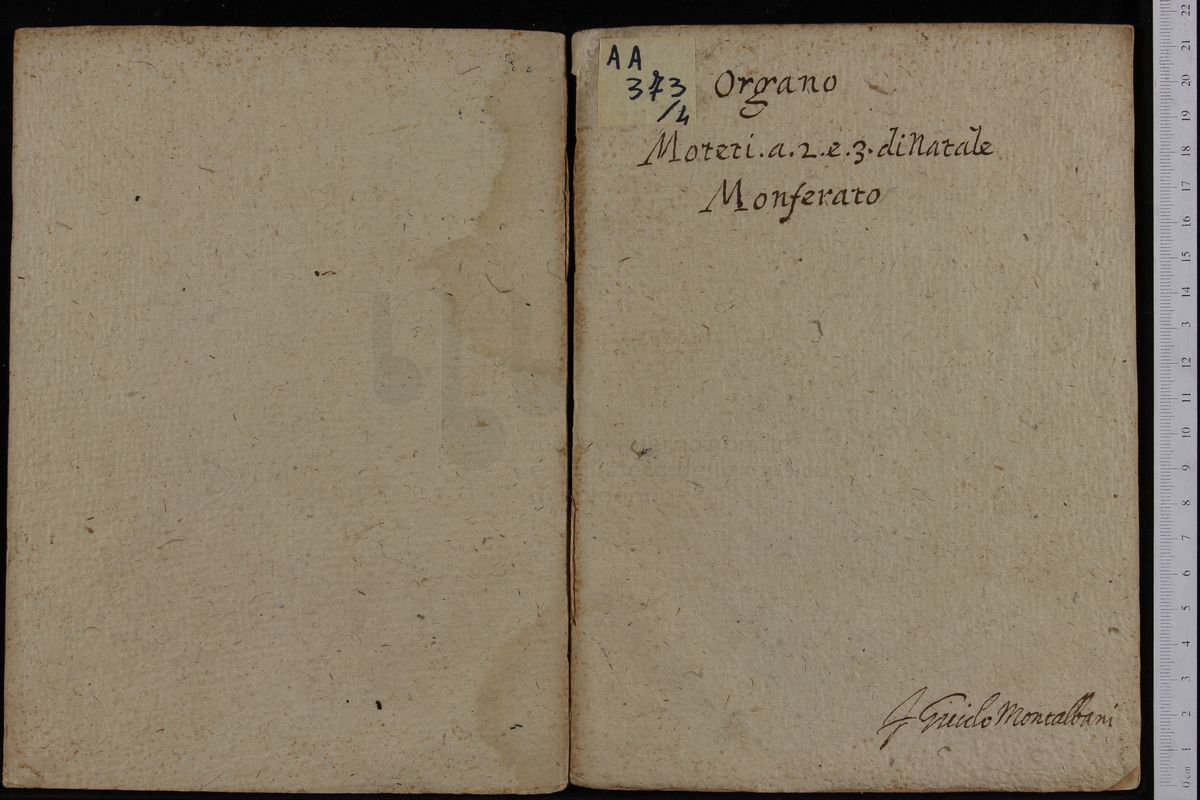 AA
373
/4
Organo
Moteti.a.2.e.3.di Natale
Monferato
Guido Montalbani
22
21
20
19
18
17
16
15
14
3
12
11
10
9
8
7
6
5
4
3
2
1
0 cm